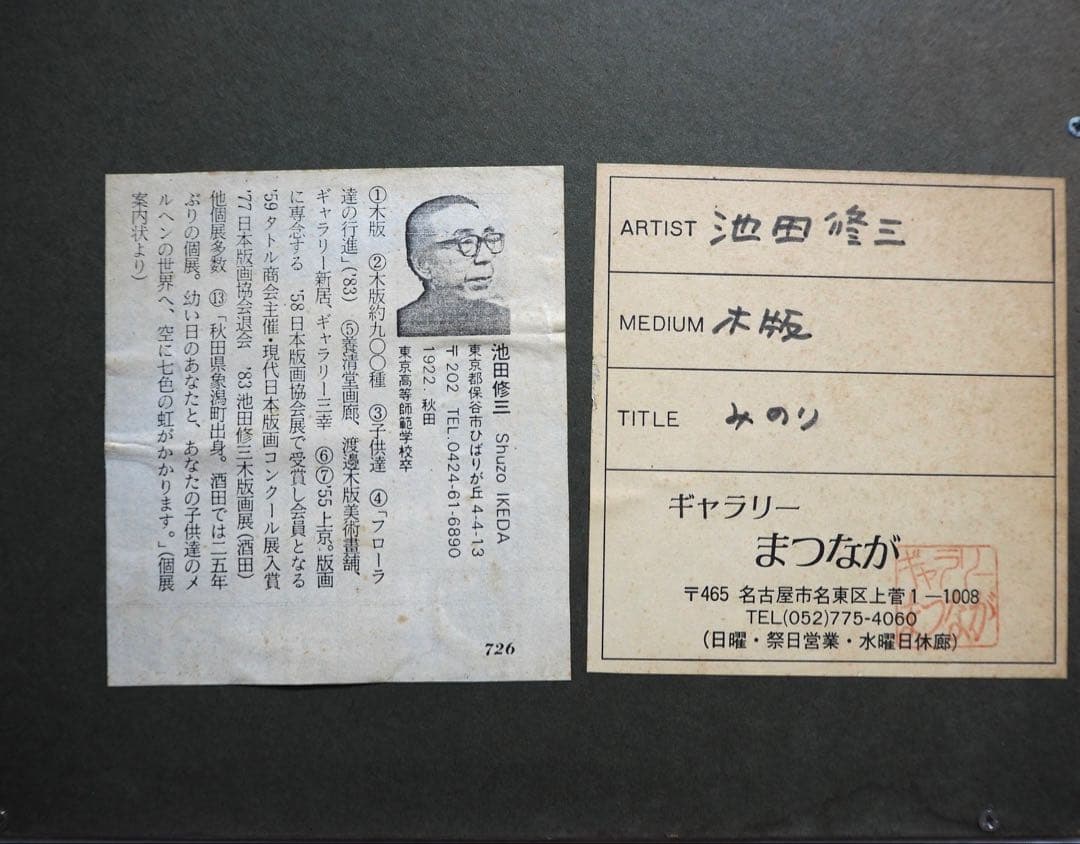 池田修三　Shuzo IKEDA
東京都保谷市ひばりが丘4-4-13
〒202　TEL.0424-61-6890
1922. 秋田
東京高等師範学校卒
①木版　②木版約九〇〇種　③子供達　④「フローラ
達の行進」('83)　⑤養清堂画廊、渡邊木版美術畫舗、
ギャラリー新居、ギャラリー三幸　⑥⑦'55上京。版画
に専念する　'58日本版画協会展で受賞し会員となる
'59タトル商会主催・現代日本版画コンクール展入賞
'77日本版画協会退会　'83池田修三木版画展（酒田）
他個展多数　⑬「秋田県象潟町出身。酒田では二五年
ぶりの個展。幼い日のあなたと、あなたの子供達のメ
ルヘンの世界へ、空に七色の虹がかかります。」（個展
案内状より）
726
ARTIST 池田修三
MEDIUM 木版
TITLE みのり
ギャラリー
まつなが
〒465 名古屋市名東区上菅1―1008
TEL(052)775-4060
(日曜・祭日営業・水曜日休廊)
ギャラリー
まつなが